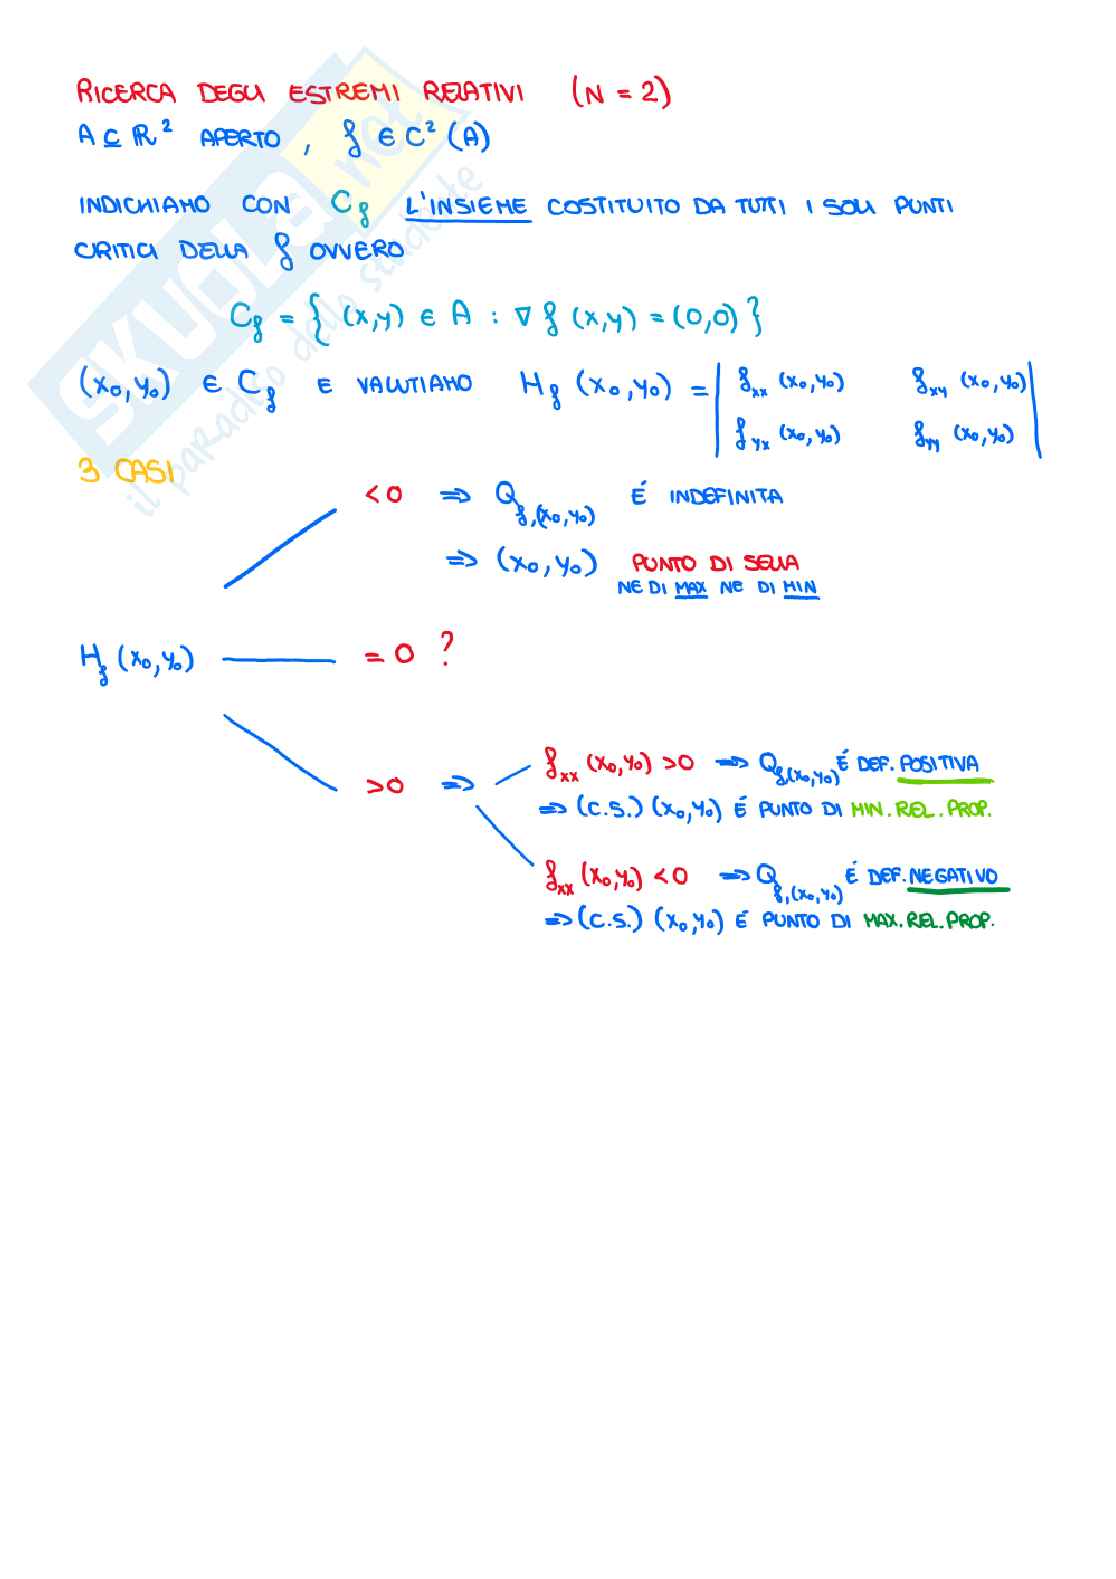 RICERCA DEGLI ESTREMI RELATIVI (N = 2)
A ⊆ ℝ² APERTO, f ∈ C² (A)
INDICHIAMO CON Cf L'INSIEME COSTITUITO DA TUTTI I SOLI PUNTI
CRITICI DELLA f OVVERO
Cf = { (x,y) ∈ A : ∇ f (x,y) = (0,0) }
(x₀,y₀) ∈ Cf E VALUTIAMO Hf (x₀,y₀) = | fxx (x₀,y₀) fxy (x₀,y₀) |
| fyx (x₀,y₀) fyy (x₀,y₀) |
3 CASI
< 0 ⇒ Qf,(x₀,y₀) É INDEFINITA
⇒ (x₀,y₀) PUNTO DI SELLA
NE DI MAX NE DI MIN
Hf (x₀,y₀) = 0 ?
fxx (x₀,y₀) > 0 ⇒ Qf(x₀,y₀) É DEF. POSITIVA
> 0 ⇒
⇒ (C.S.) (x₀,y₀) É PUNTO DI MIN. REL. PROP.
fxx (x₀,y₀) < 0 ⇒ Qf,(x₀,y₀) É DEF. NEGATIVO
⇒ (C.S.) (x₀,y₀) É PUNTO DI MAX. REL. PROP.
SKUOLA.net
il paradiso dello studente